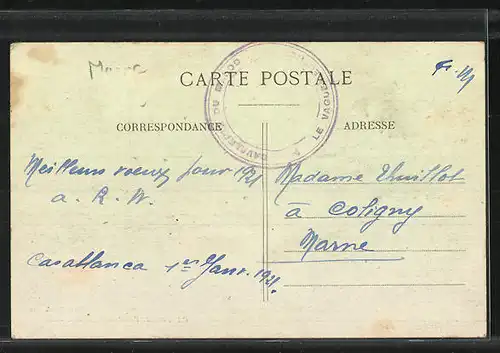 Maroc
F. M
CARTE POSTALE
CORRESPONDANCE
ADRESSE
Meilleurs voeux pour 1921
a. R. W.
Casablanca 1er Janv. 1921.
Madame Thuillot
à Coligny
Marne
DU MAROC
LE VAGUEMESTRE